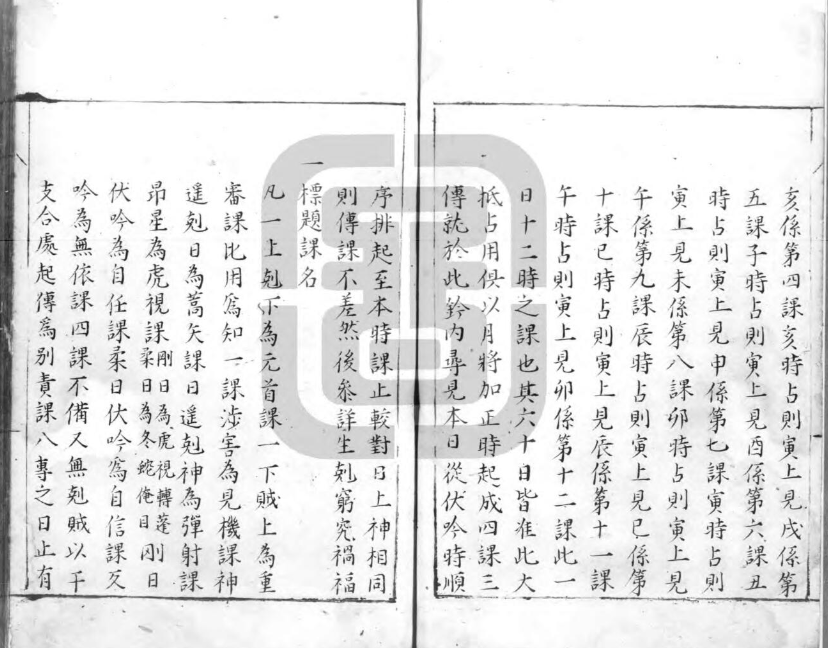 亥係第四課亥時占則寅上見戌係第
五課子時占則寅上見酉係第六課丑
時占則寅上見申係第七課寅時占則
寅上見未係第八課卯時占則寅上見
午係第九課辰時占則寅上見巳係第
十課巳時占則寅上見辰係第十一課
午時占則寅上見卯係第十二課此一
日十二時之課也其六十日皆准此大
抵占用俱以月將加正時起成四課三
傳就於此鈐内尋見本日從伏吟時順
序排起至本時課止較對日上神相同
則傳課不差然後叅詳生剋窮究禍福
一標題課名
凡一上剋下為元首課一下賊上為重
審課比用為知一課涉害為見機課神
遥剋日為蒿矢課日遥剋神為彈射課
昴星為虎視課剛日為虎視轉蓬柔日為冬蛇俺目剛日
伏吟為自任課柔日伏吟為自信課又
吟為無依課四課不備又無剋賊以干
支合處起傳為别責課八專之日止有